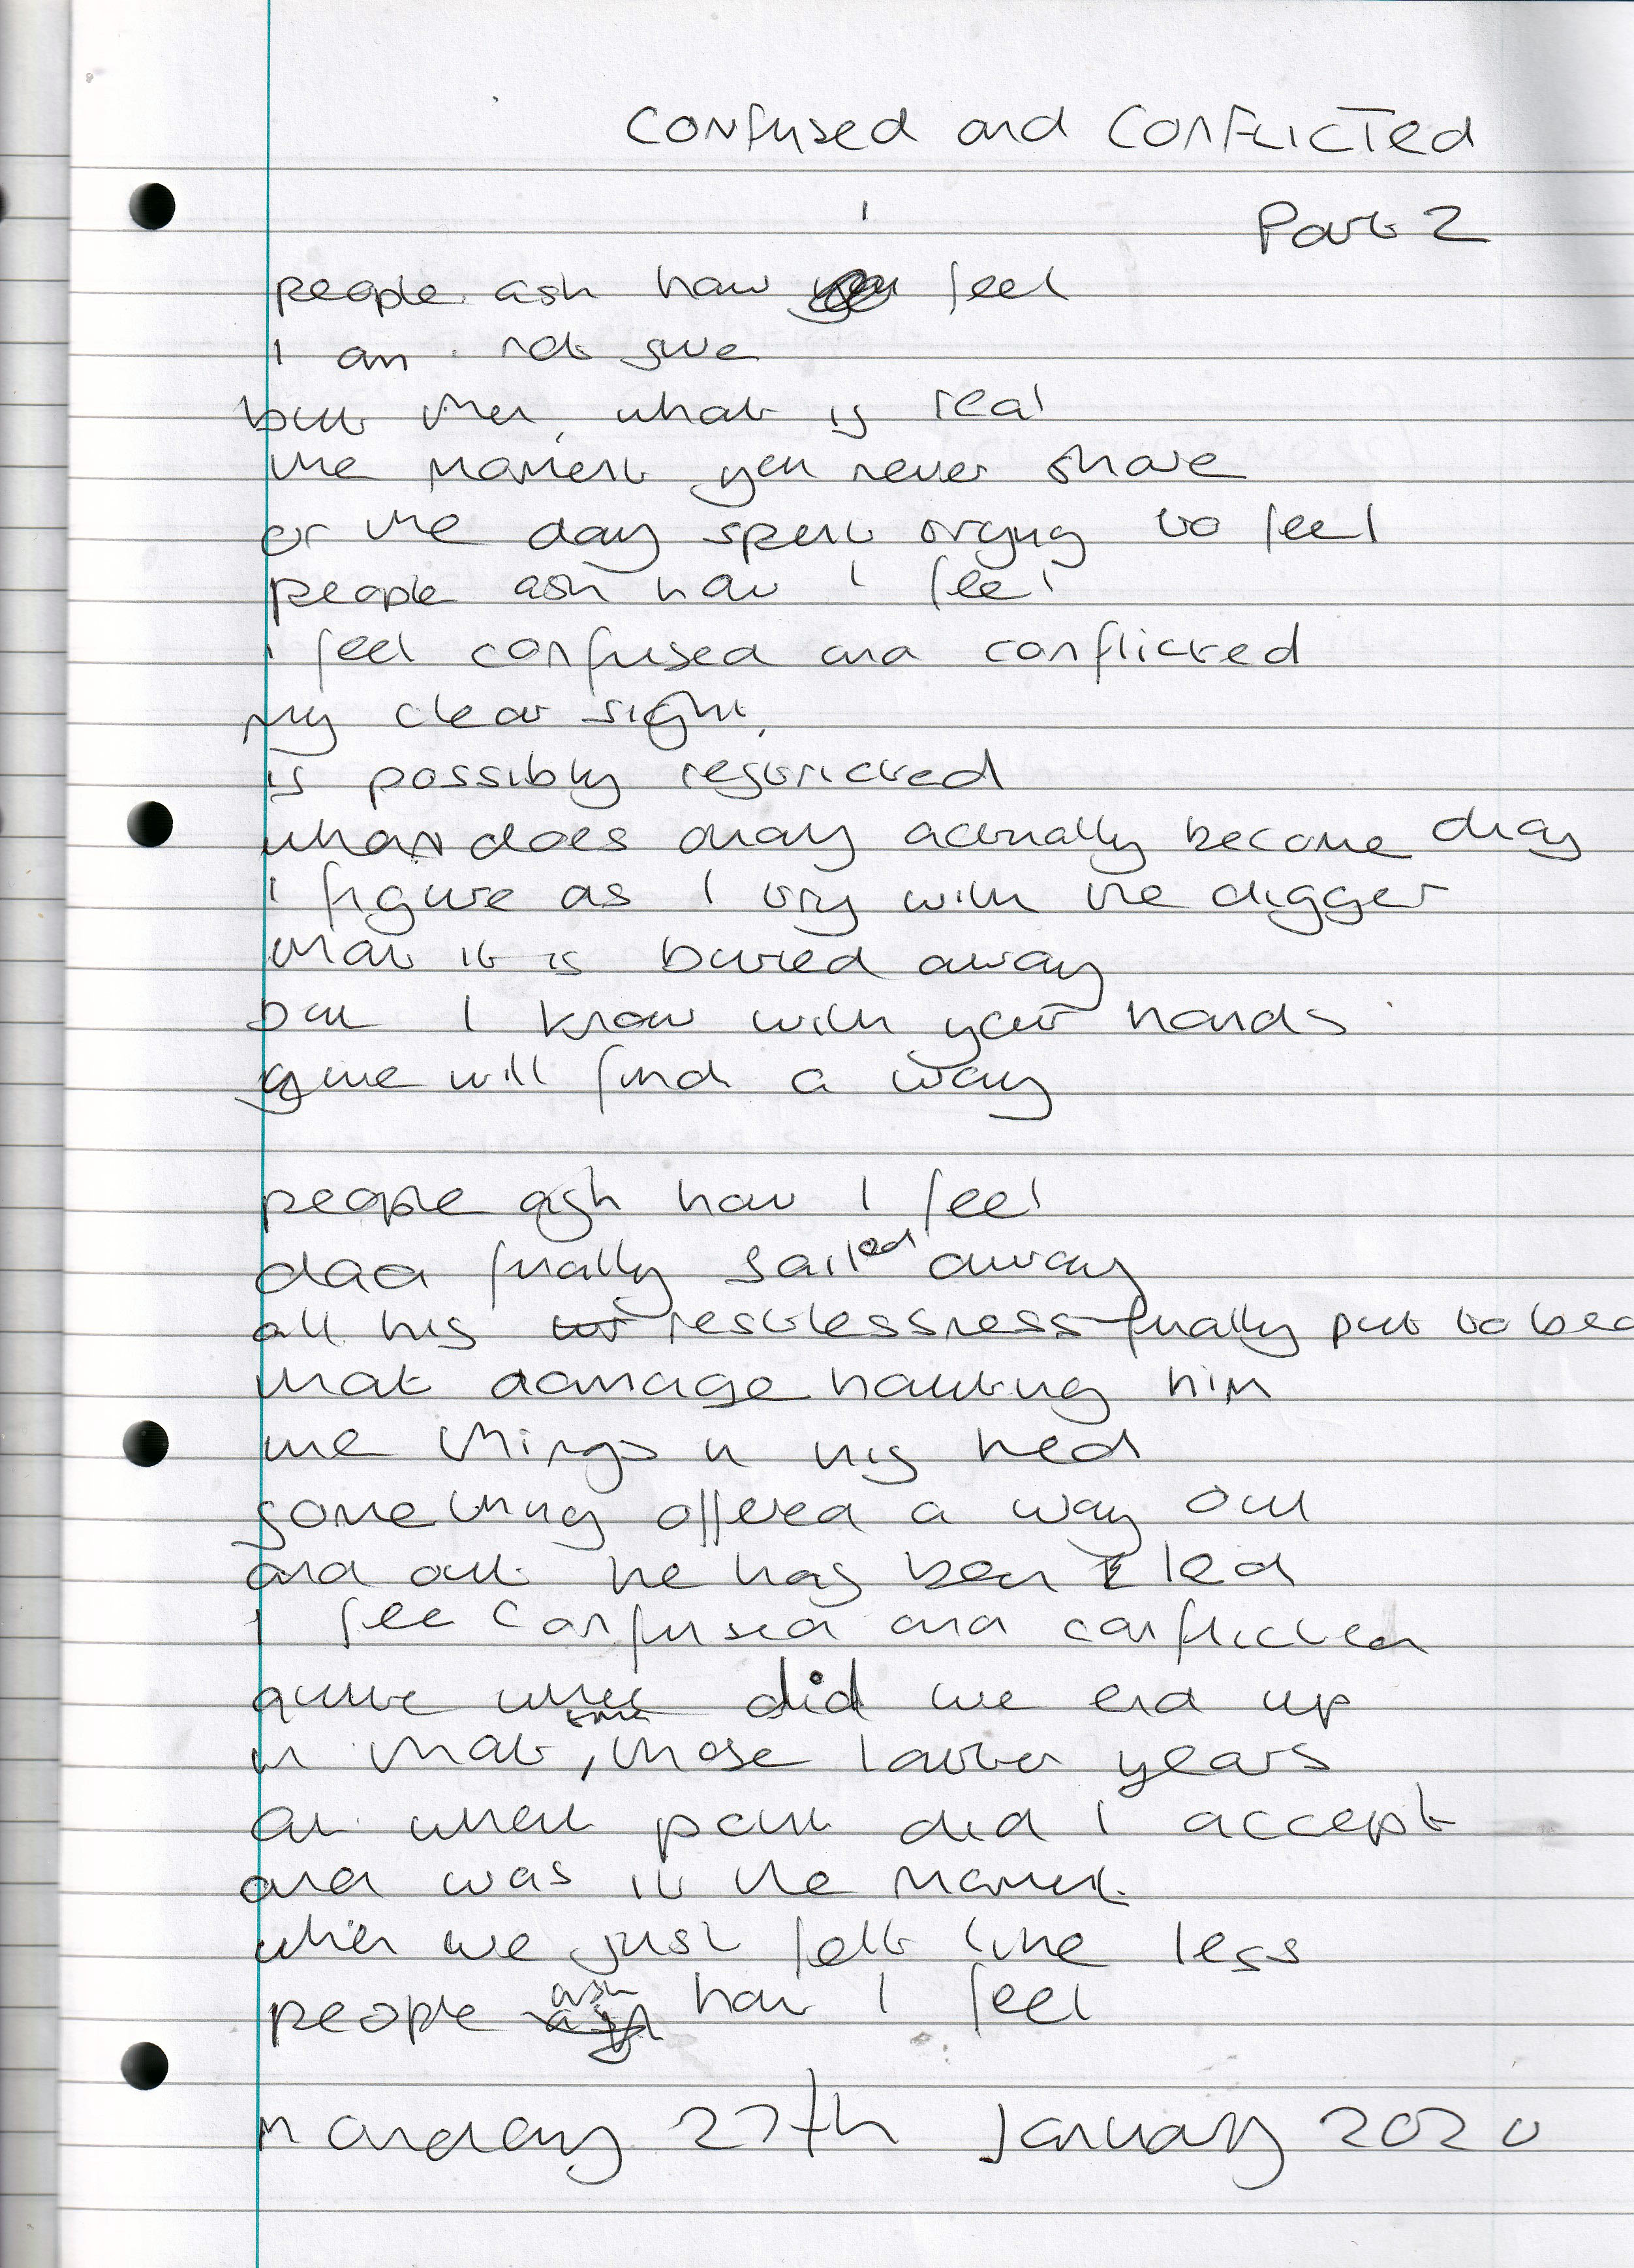 Confused and Conflicted
Part 2
I
people ask how feel
I am not sure
but then, what is real
the moment you never share
or the day spent trying to feel
people ask how I feel
I feel confused and conflicted
my clear sight,
is possibly restricted
when does okay actually become okay
I figure as I try with the digger
that it is buried away
but I know with your hands
will find a way
people ask how I feel
dad finally sailed away
all his restlessness finally put to bed
that damage haunting him
the things in his hed
something offered a way out
and out he has been led
I fee confused and conflicted
quite where did we end up
time
in that, those latter years
at what point did I accept
and was it the moment
when we just felt like less
ask
people how I feel
Monday 27th January 2020